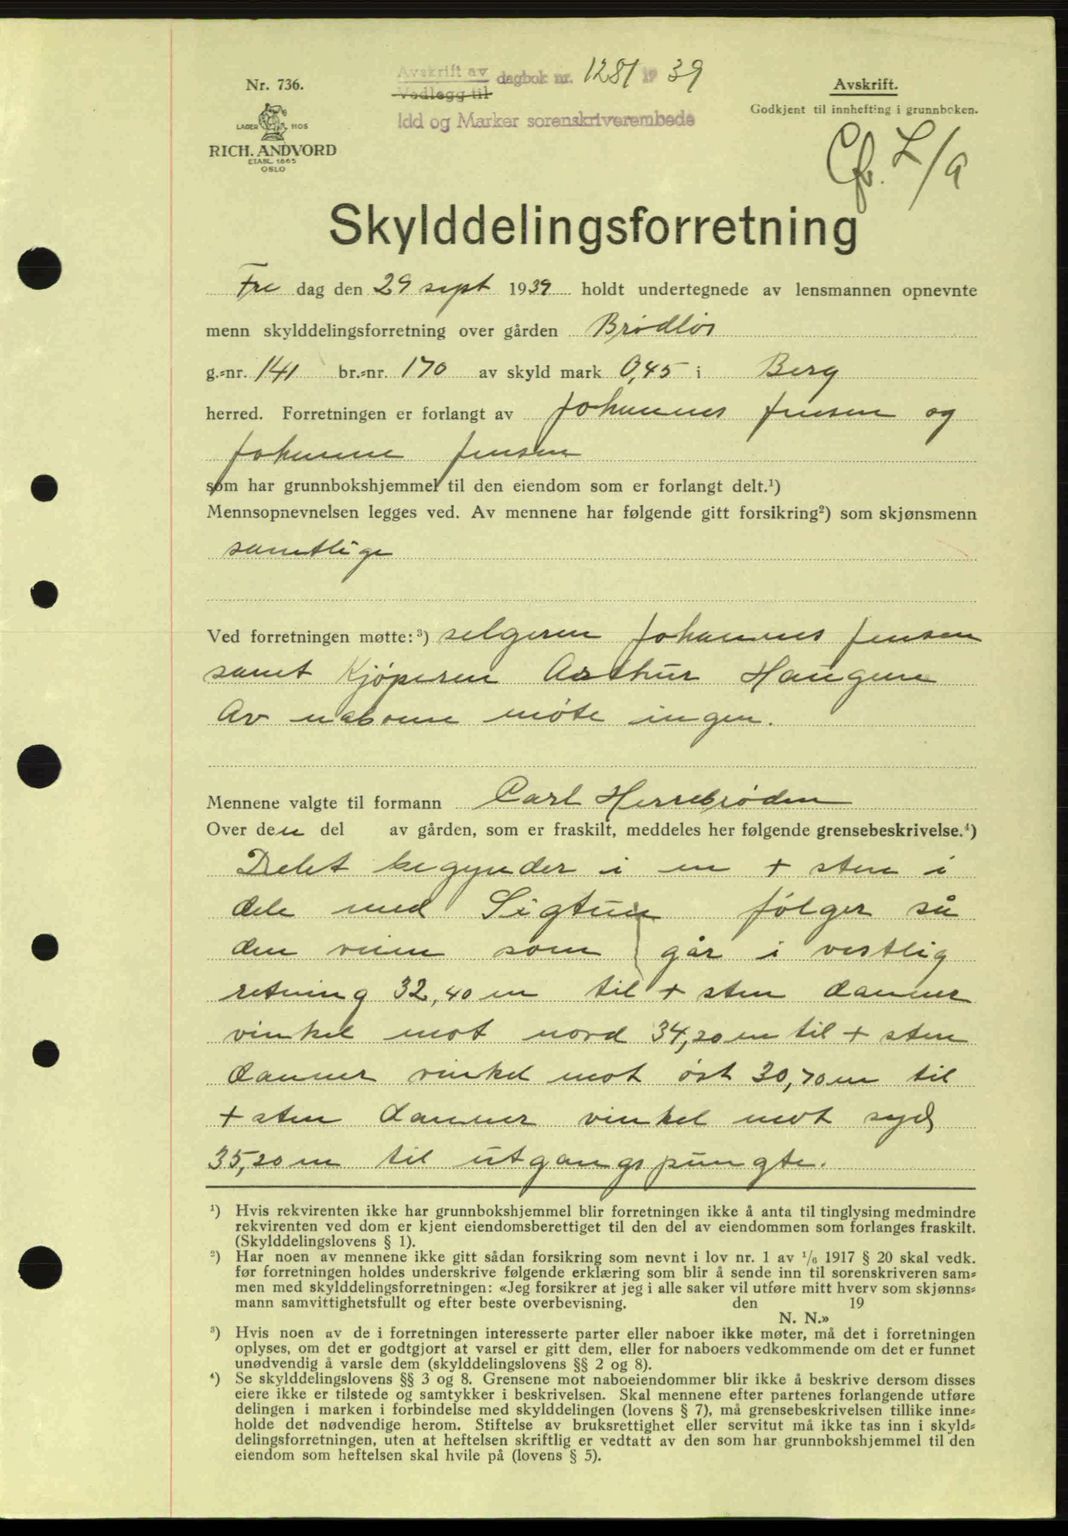 Nr. 736.
LAGER HOS
RICH. ANDVORD
ETABL. 1865
OSLO
Avskrift av dagbok nr. 1281 1939
Vedlegg til
Idd og Marker sorenskriverembede
Avskrift.
Godkjent til innhefting i grunnboken.
Cfr. L/a
Skylddelingsforretning
Fre dag den 29 sept 1939 holdt undertegnede av lensmannen opnevnte
menn skylddelingsforretning over gården Brødløs
g.=nr. 141 br.=nr. 170 av skyld mark 0,45 i Berg
herred. Forretningen er forlangt av Johannes Jensen og
Johanne Jensen
som har grunnbokshjemmel til den eiendom som er forlangt delt.¹)
Mennsopnevnelsen legges ved. Av mennene har følgende gitt forsikring²) som skjønsmenn
samtlige
Ved forretningen møtte:³) selgeren Johannes Jensen
samt Kjøperen Arthur Haugene
Av naboene møte ingen.
Mennene valgte til formann Carl Herrebrøden
Over den del av gården, som er fraskilt, meddeles her følgende grensebeskrivelse.⁴)
Delet begynder i en + sten i
dele med Sigtun følger så
den veien som går i vestlig
retning 32,40 m til + sten danner
vinkel mot nord 34,20 m til + sten
danner vinkel mot øst 30,70 m til
+ sten danner vinkel mot syd
35,20 m til utgangspungte.
¹) Hvis rekvirenten ikke har grunnbokshjemmel blir forretningen ikke å anta til tinglysing medmindre
rekvirenten ved dom er kjent eiendomsberettiget til den del av eiendommen som forlanges fraskilt.
(Skylddelingslovens § 1).
²) Har noen av mennene ikke gitt sådan forsikring som nevnt i lov nr. 1 av 1/6 1917 § 20 skal vedk.
før forretningen holdes underskrive følgende erklæring som blir å sende inn til sorenskriveren sam=
men med skylddelingsforretningen: «Jeg forsikrer at jeg i alle saker vil utføre mitt hverv som skjønns=
mann samvittighetsfullt og efter beste overbevisning. den 19
N. N.»
³) Hvis noen av de i forretningen interesserte parter eller naboer ikke møter, må det i forretningen
oplyses, om det er godtgjort at varsel er gitt dem, eller for naboers vedkommende om det er funnet
unødvendig å varsle dem (skylddelingslovens §§ 2 og 8).
⁴) Se skylddelingslovens §§ 3 og 8. Grensene mot naboeiendommer blir ikke å beskrive dersom disses
eiere ikke er tilstede og samtykker i beskrivelsen. Skal mennene efter partenes forlangende utføre
delingen i marken i forbindelse med skylddelingen (lovens § 7), må grensebeskrivelsen tillike inne=
holde det nødvendige herom. Stiftelse av bruksrettighet eller servitut må ikke tas inn i skyld=
delingsforretningen, uten at heftelsen skriftlig er vedtatt av den som har grunnbokshjemmel til den
eiendom som heftelsen skal hvile på (lovens § 5).